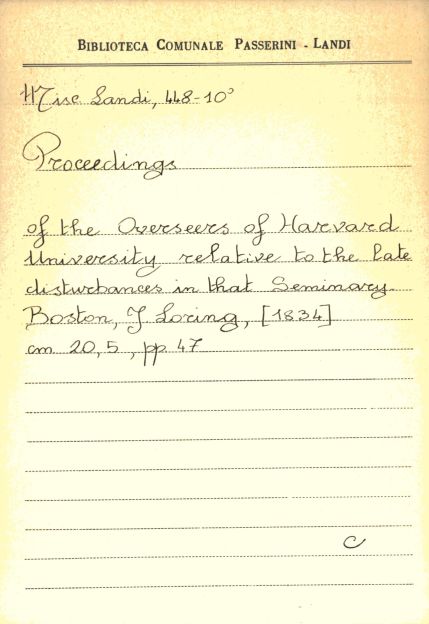 BIBLIOTECA COMUNALE PASSERINI - LANDI
Misc Landi, 448-10°
Proceedings
of the Overseers of Harvard
University relative to the late
disturbances in that Seminary.
Boston, J Loring, [1834]
cm 20,5, pp 47
C